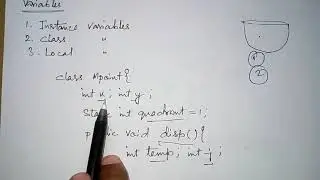 Variables
1. Instance variables
2. Class "
3. Local "
class Mpoint{
int x; int y;
static int quadrant = 1;
public void disp(){
int temp; int j;
2